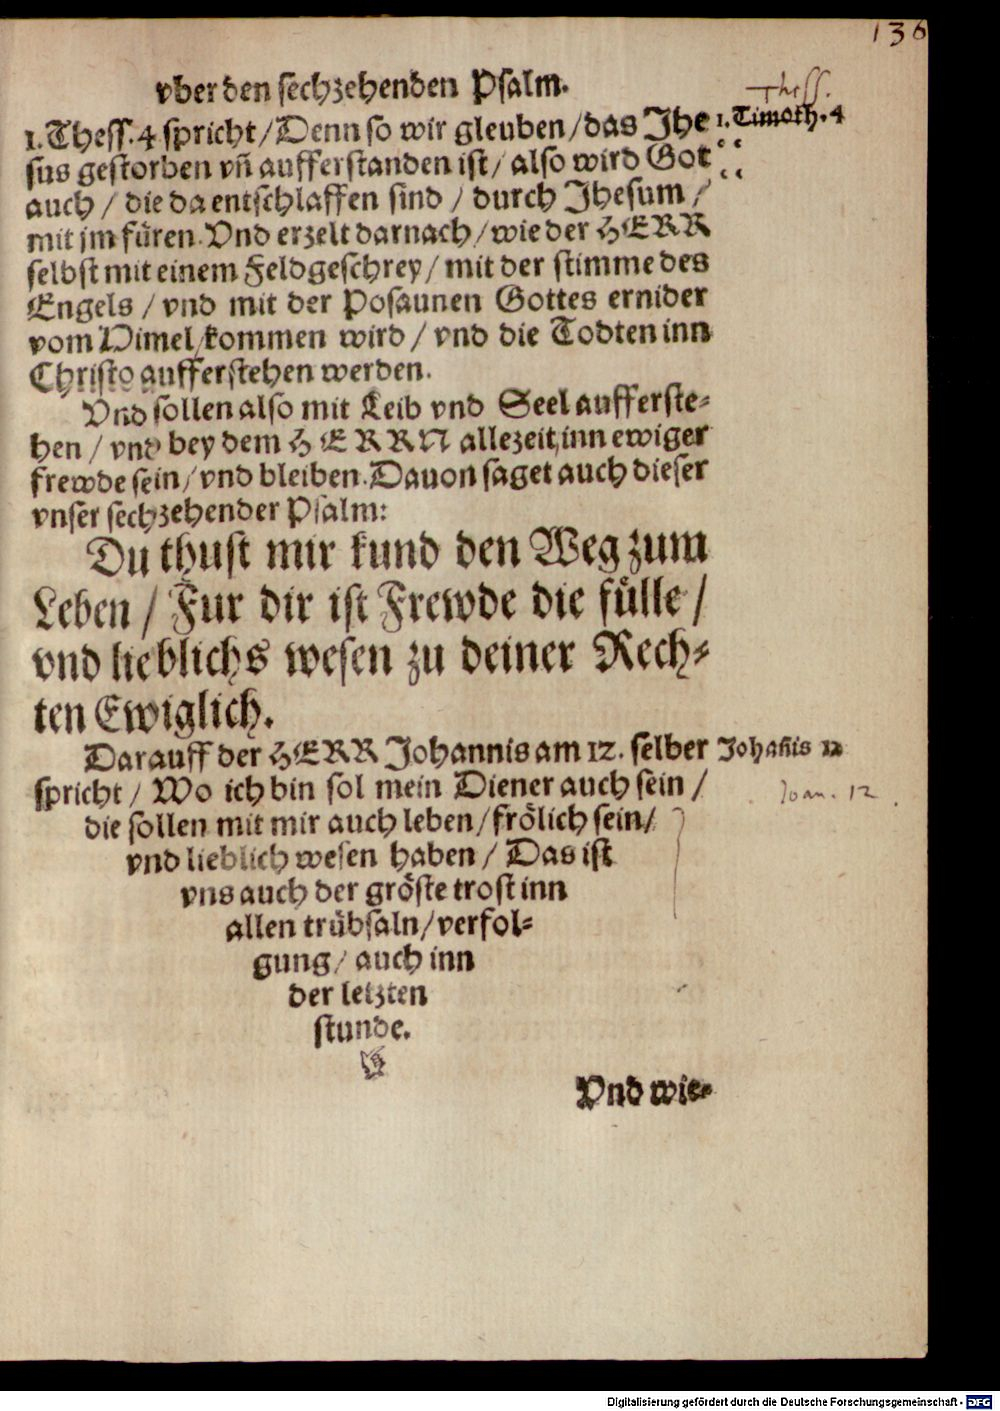 136
vber den sechzehenden Psalm.
Thess.
1. Thess. 4 spricht / Denn so wir gleuben / das Jhe
1. Timoth. 4
sus gestorben vñ aufferstanden ist / also wird Got
auch / die da entschlaffen sind / durch Jhesum /
mit jm füren. Vnd erzelt darnach / wie der HERR
selbst mit einem Feldgeschrey / mit der stimme des
Engels / vnd mit der Posaunen Gottes ernider
vom Himel kommen wird / vnd die Todten inn
Christo aufferstehen werden.
Vnd sollen also mit Leib vnd Seel aufferste-
hen / vnd bey dem HERRN allezeit inn ewiger
frewde sein / vnd bleiben. Dauon saget auch dieser
vnser sechzehender Psalm:
Du thust mir kund den Weg zum
Leben / Fur dir ist Frewde die fülle /
vnd lieblichs wesen zu deiner Rech-
ten Ewiglich.
Darauff der HERR Johannis am 12. selber
Johañis 12
spricht / Wo ich bin sol mein Diener auch sein /
Ioan. 12
die sollen mit mir auch leben / frölich sein /
vnd lieblich wesen haben / Das ist
vns auch der gröste trost inn
allen trübsaln / verfol-
gung / auch inn
der letzten
stunde.
Vnd wie-
Digitalisierung gefördert durch die Deutsche Forschungsgemeinschaft - DFG